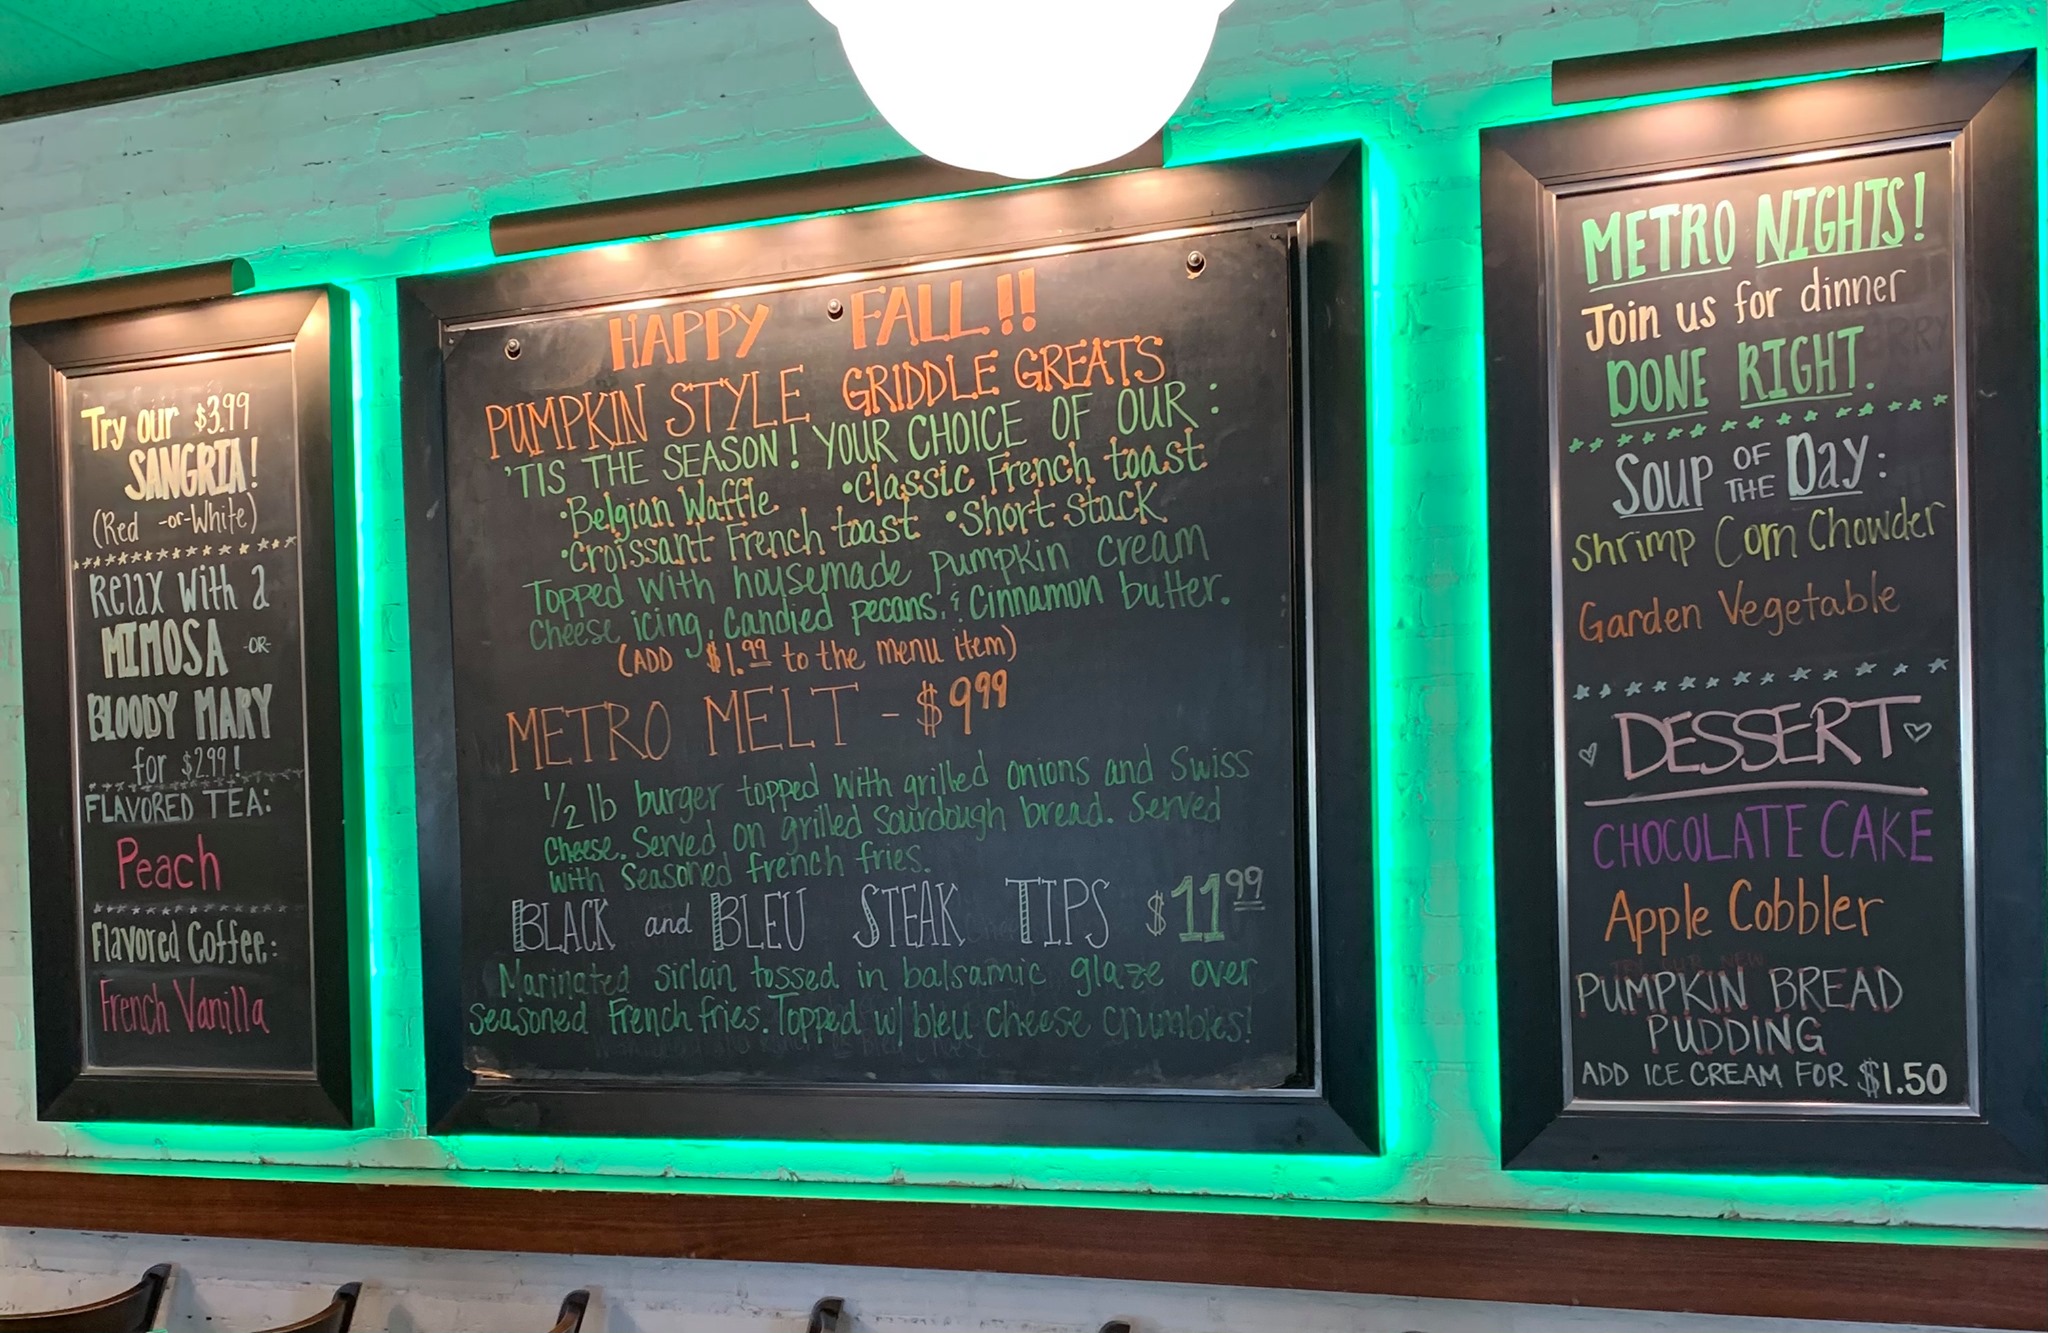 Try our $3.99
SANGRIA!
(Red -or- White)
Relax with a
MIMOSA -OR-
BLOODY MARY
for $2.99!
FLAVORED TEA:
Peach
Flavored Coffee:
French Vanilla
HAPPY FALL!!
PUMPKIN STYLE GRIDDLE GREATS
'TIS THE SEASON! YOUR CHOICE OF OUR:
•Belgian Waffle •Classic French toast
•Croissant French toast •Short stack
Topped with housemade pumpkin cream
cheese icing, candied pecans, & cinnamon butter.
(ADD $1.99 to the menu item)
METRO MELT - $9.99
1/2 lb burger topped with grilled onions and Swiss
cheese. Served on grilled sourdough bread. Served
with seasoned french fries.
BLACK and BLEU STEAK TIPS $11.99
Marinated sirloin tossed in balsamic glaze over
seasoned French fries. Topped w/ bleu cheese crumbles!
METRO NIGHTS!
Join us for dinner
DONE RIGHT.
SOUP OF THE DAY:
Shrimp Corn Chowder
Garden Vegetable
DESSERT
CHOCOLATE CAKE
Apple Cobbler
PUMPKIN BREAD
PUDDING
ADD ICE CREAM FOR $1.50